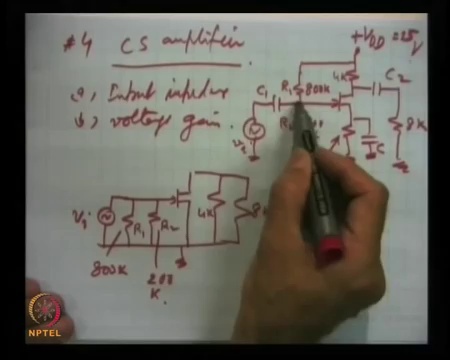 #4 CS amplifier
a, Input impedance
b, voltage gain.
+VDD = 25V
4K
C2
R1 800K
C1
8K
C
Vi
Vi
R1
R2
4K
800K
200
K.
NPTEL